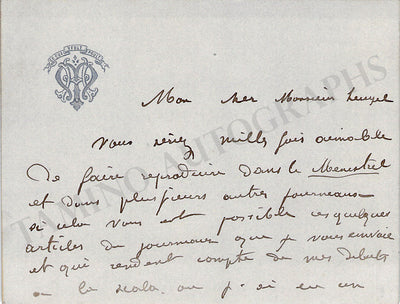 Mon cher Monsieur Heugel
Vous seriez mille fois aimable
de faire reproduire dans le Menestrel
et dans plusieurs autres journeaux
si cela vous est possible ces quelques
articles de journeaux que je vous envoie
et qui rendent compte de mes debuts
a la scala ou j'ai eu un
TAMINO AUTOGRAPHS